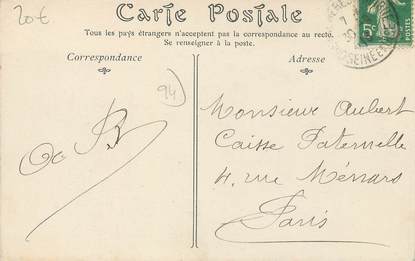 20€
Carte Postale
Tous les pays étrangers n'acceptent pas la correspondance au recto.
Se renseigner à la poste.
Correspondance
Adresse
94
Monsieur Aubert
Caisse Paternelle
4, rue Ménars
Paris
5c
POSTES